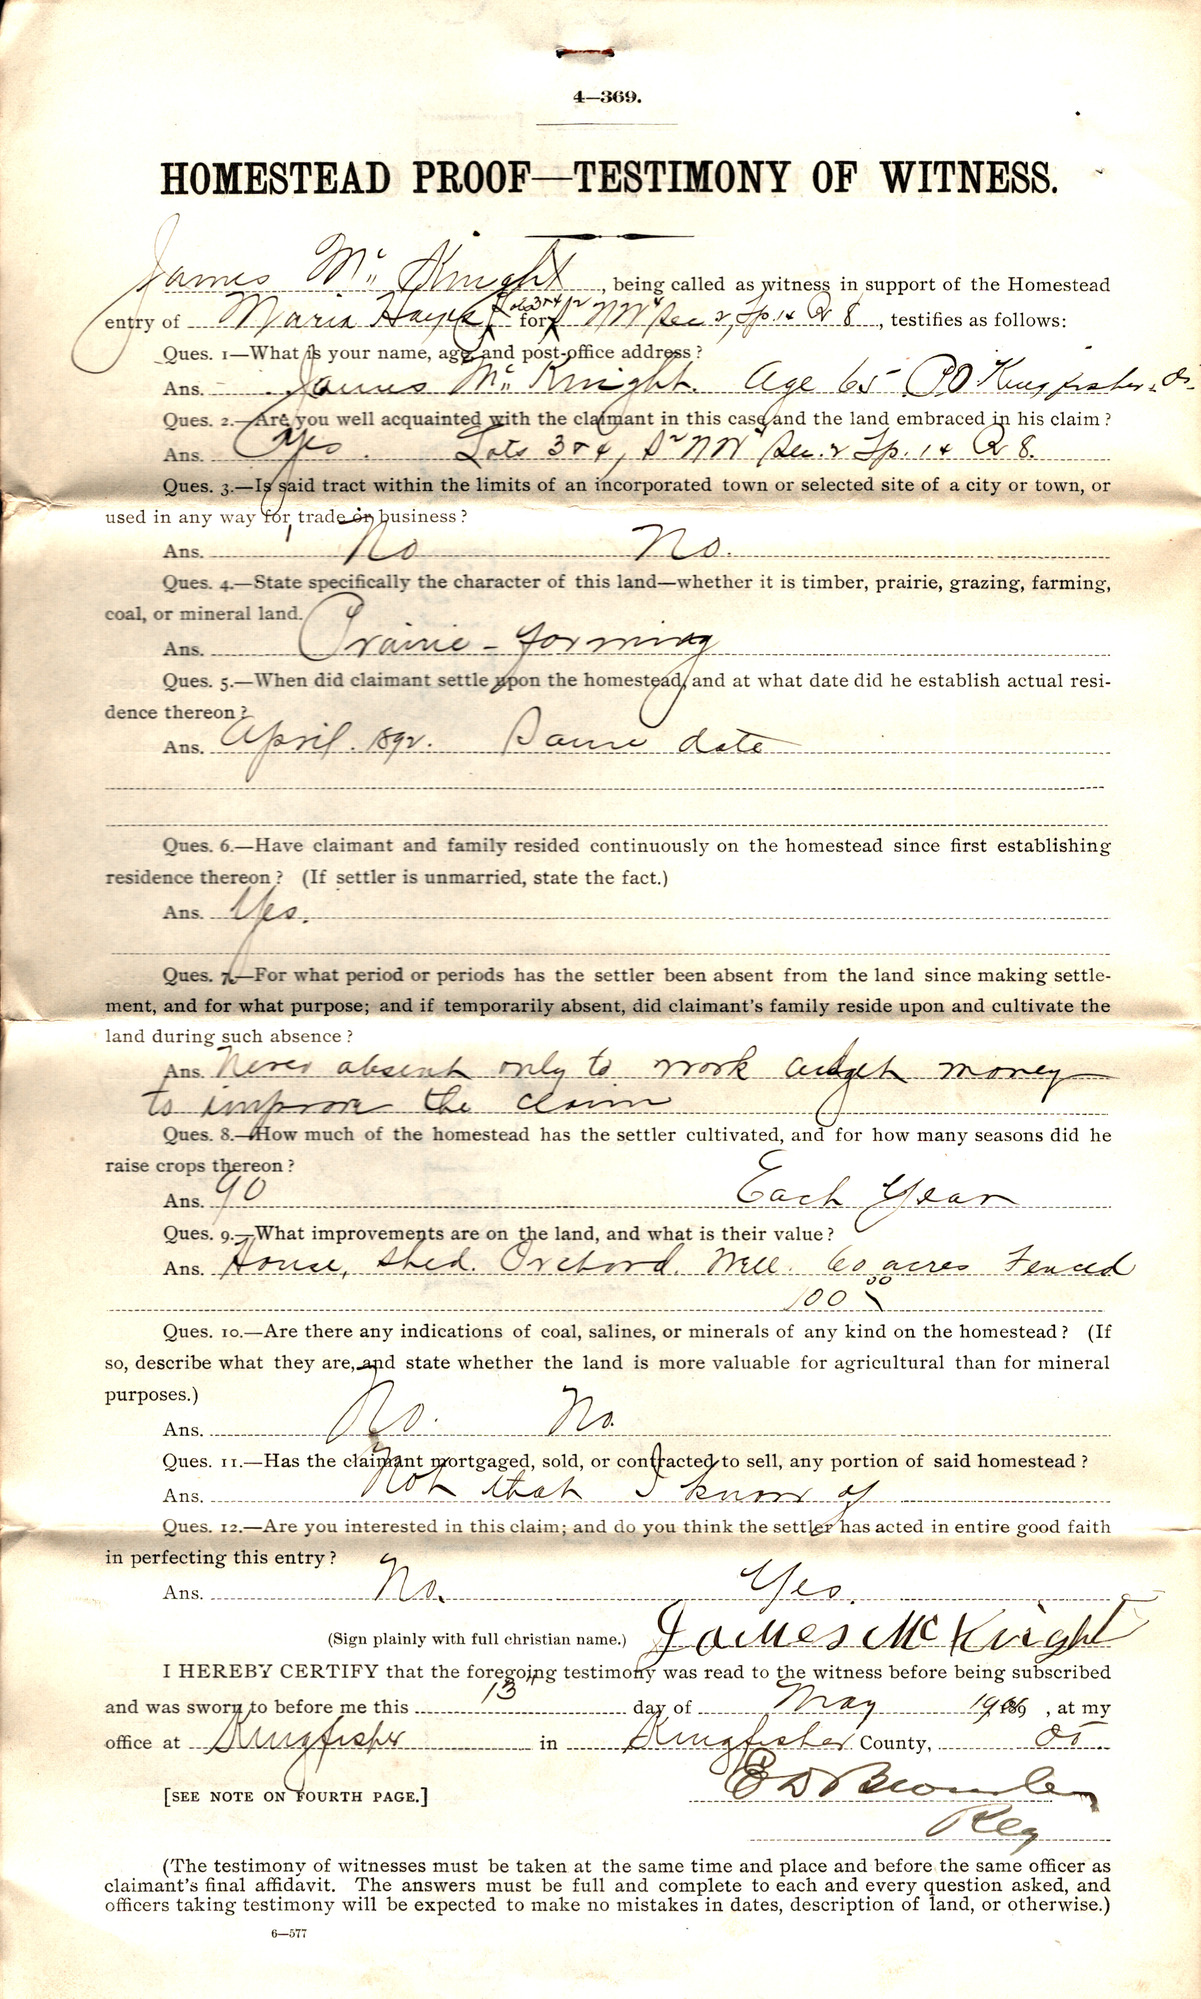 4—369.
HOMESTEAD PROOF—TESTIMONY OF WITNESS.
James Mc Knight, being called as witness in support of the Homestead
entry of Maria Hayes for Lots 3 & 4 S2 NW4 Sec 2, Tp. 14 R 8, testifies as follows:
Ques. 1—What is your name, age, and post-office address?
Ans. James Mc Knight. Age 65 PO Kingfisher, O.T.
Ques. 2.—Are you well acquainted with the claimant in this case and the land embraced in his claim?
Ans. Yes. Lots 3 & 4, S2 NW4 Sec. 2 Tp. 14 R 8.
Ques. 3.—Is said tract within the limits of an incorporated town or selected site of a city or town, or
used in any way for trade or business?
Ans. No No.
Ques. 4.—State specifically the character of this land—whether it is timber, prairie, grazing, farming,
coal, or mineral land.
Ans. Prairie - farming
Ques. 5.—When did claimant settle upon the homestead, and at what date did he establish actual resi-
dence thereon?
Ans. April. 1892. Same date
Ques. 6.—Have claimant and family resided continuously on the homestead since first establishing
residence thereon? (If settler is unmarried, state the fact.)
Ans. Yes.
Ques. 7.—For what period or periods has the settler been absent from the land since making settle-
ment, and for what purpose; and if temporarily absent, did claimant's family reside upon and cultivate the
land during such absence?
Ans. Never absent only to work and get money
to improve the claim
Ques. 8.—How much of the homestead has the settler cultivated, and for how many seasons did he
raise crops thereon?
Ans. 90 Each Year
Ques. 9.—What improvements are on the land, and what is their value?
Ans. House, shed. Orchard. Well. 60 acres Fenced
100 00
Ques. 10.—Are there any indications of coal, salines, or minerals of any kind on the homestead? (If
so, describe what they are, and state whether the land is more valuable for agricultural than for mineral
purposes.)
Ans. No. No.
Ques. 11.—Has the claimant mortgaged, sold, or contracted to sell, any portion of said homestead?
Ans. Not that I know of
Ques. 12.—Are you interested in this claim; and do you think the settler has acted in entire good faith
in perfecting this entry?
Ans. No. Yes.
(Sign plainly with full christian name.) James Mc Knight
I HEREBY CERTIFY that the foregoing testimony was read to the witness before being subscribed
and was sworn to before me this 13th day of May , at my
office at Kingfisher in Kingfisher County, O.T.
E D Brownlee
[SEE NOTE ON FOURTH PAGE.]
Reg
(The testimony of witnesses must be taken at the same time and place and before the same officer as
claimant's final affidavit. The answers must be full and complete to each and every question asked, and
officers taking testimony will be expected to make no mistakes in dates, description of land, or otherwise.)
6—577